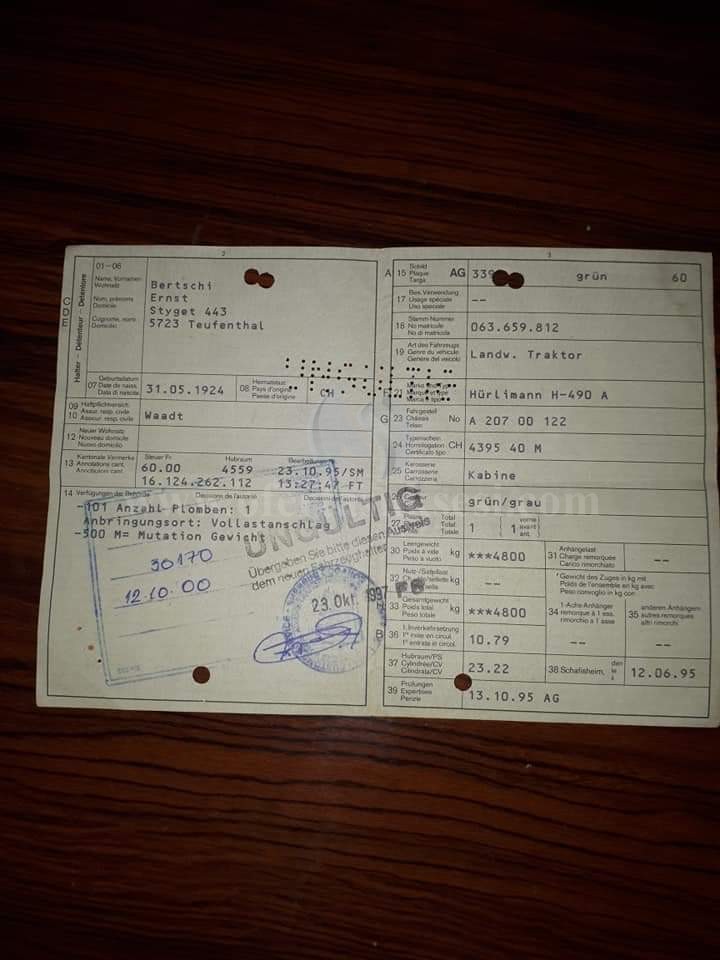 2
01-06
Name, Vornamen
Wohnsitz
Nom, prénoms
Domicile
Cognome, nomi
Domicilio
Halter - Détenteur - Detentore
C
D
E
Bertschi
Ernst
Styget 443
5723 Teufenthal
07 Geburtsdatum
Date de naiss.
Data di nascita
31.05.1924
08 Heimatstaat
Pays d'origine
Paese d'origine
CH
09 Haftpflichtversich.
10 Assur. resp. civile
Waadt
12 Neuer Wohnsitz
Nouveau domicile
Nuovo domicilio
13 Kantonale Vermerke
Annotations cant.
Annotazioni cant.
Steuer Fr. Hubraum
60.00 4559 23.10.95/SM
16.124.262.112 13:27:47 FT
14 Verfügungen der Behörde Décisions de l'autorité
-101 Anzahl Plomben: 1
Anbringungsort: Vollastanschlag
-500 M= Mutation Gewicht
UNGÜLTIG
Übergeben Sie bitte diesen Ausweis
dem neuen Fahrzeughalter
30170
12.10.00
23. Okt. 1997
3
A 15 Schild
Plaque
Targa
AG 339 grün 60
17 Bes. Verwendung
Usage spéciale
Uso speciale
--
18 Stamm-Nummer
No matricule
No di matricola
063.659.812
19 Art des Fahrzeugs
Genre du véhicule
Genere del veicolo
Landw. Traktor
21 Marke und Typ
Marque et type
Marca e tipo
Hürlimann H-490 A
G 23 Fahrgestell
Châssis
Telaio
No A 207 00 122
24 Typenschein
Homologation
Certificato tipo
CH 4395 40 M
25 Karosserie
Carrosserie
Carrozzeria
Kabine
grün/grau
27 Total
Total
Totale
1 1 vorne
avant
ant.
30 Leergewicht
Poids à vide
Peso a vuoto
kg ***4800
31 Anhängelast
Charge remorquée
Carico rimorchiato
--
32 Nutz-/Sattellast
kg --
Gewicht des Zuges in kg mit
Poids de l'ensemble en kg avec
Peso convoglio in kg con
33 Gesamtgewicht
Poids total
Peso totale
kg ***4800
34 1-Achs-Anhänger
remorque à 1 ess.
rimorchio a 1 asse
--
35 anderen Anhängern
autres remorques
altri rimorchi
--
B 36 1. Inverkehrsetzung
1re mise en circul.
1a entrata in circol.
10.79
37 Hubraum/PS
Cylindrée/CV
Cilindrata/CV
23.22
38 Schafisheim, den
le
12.06.95
39 Prüfungen
Expertises
Perizie
13.10.95 AG